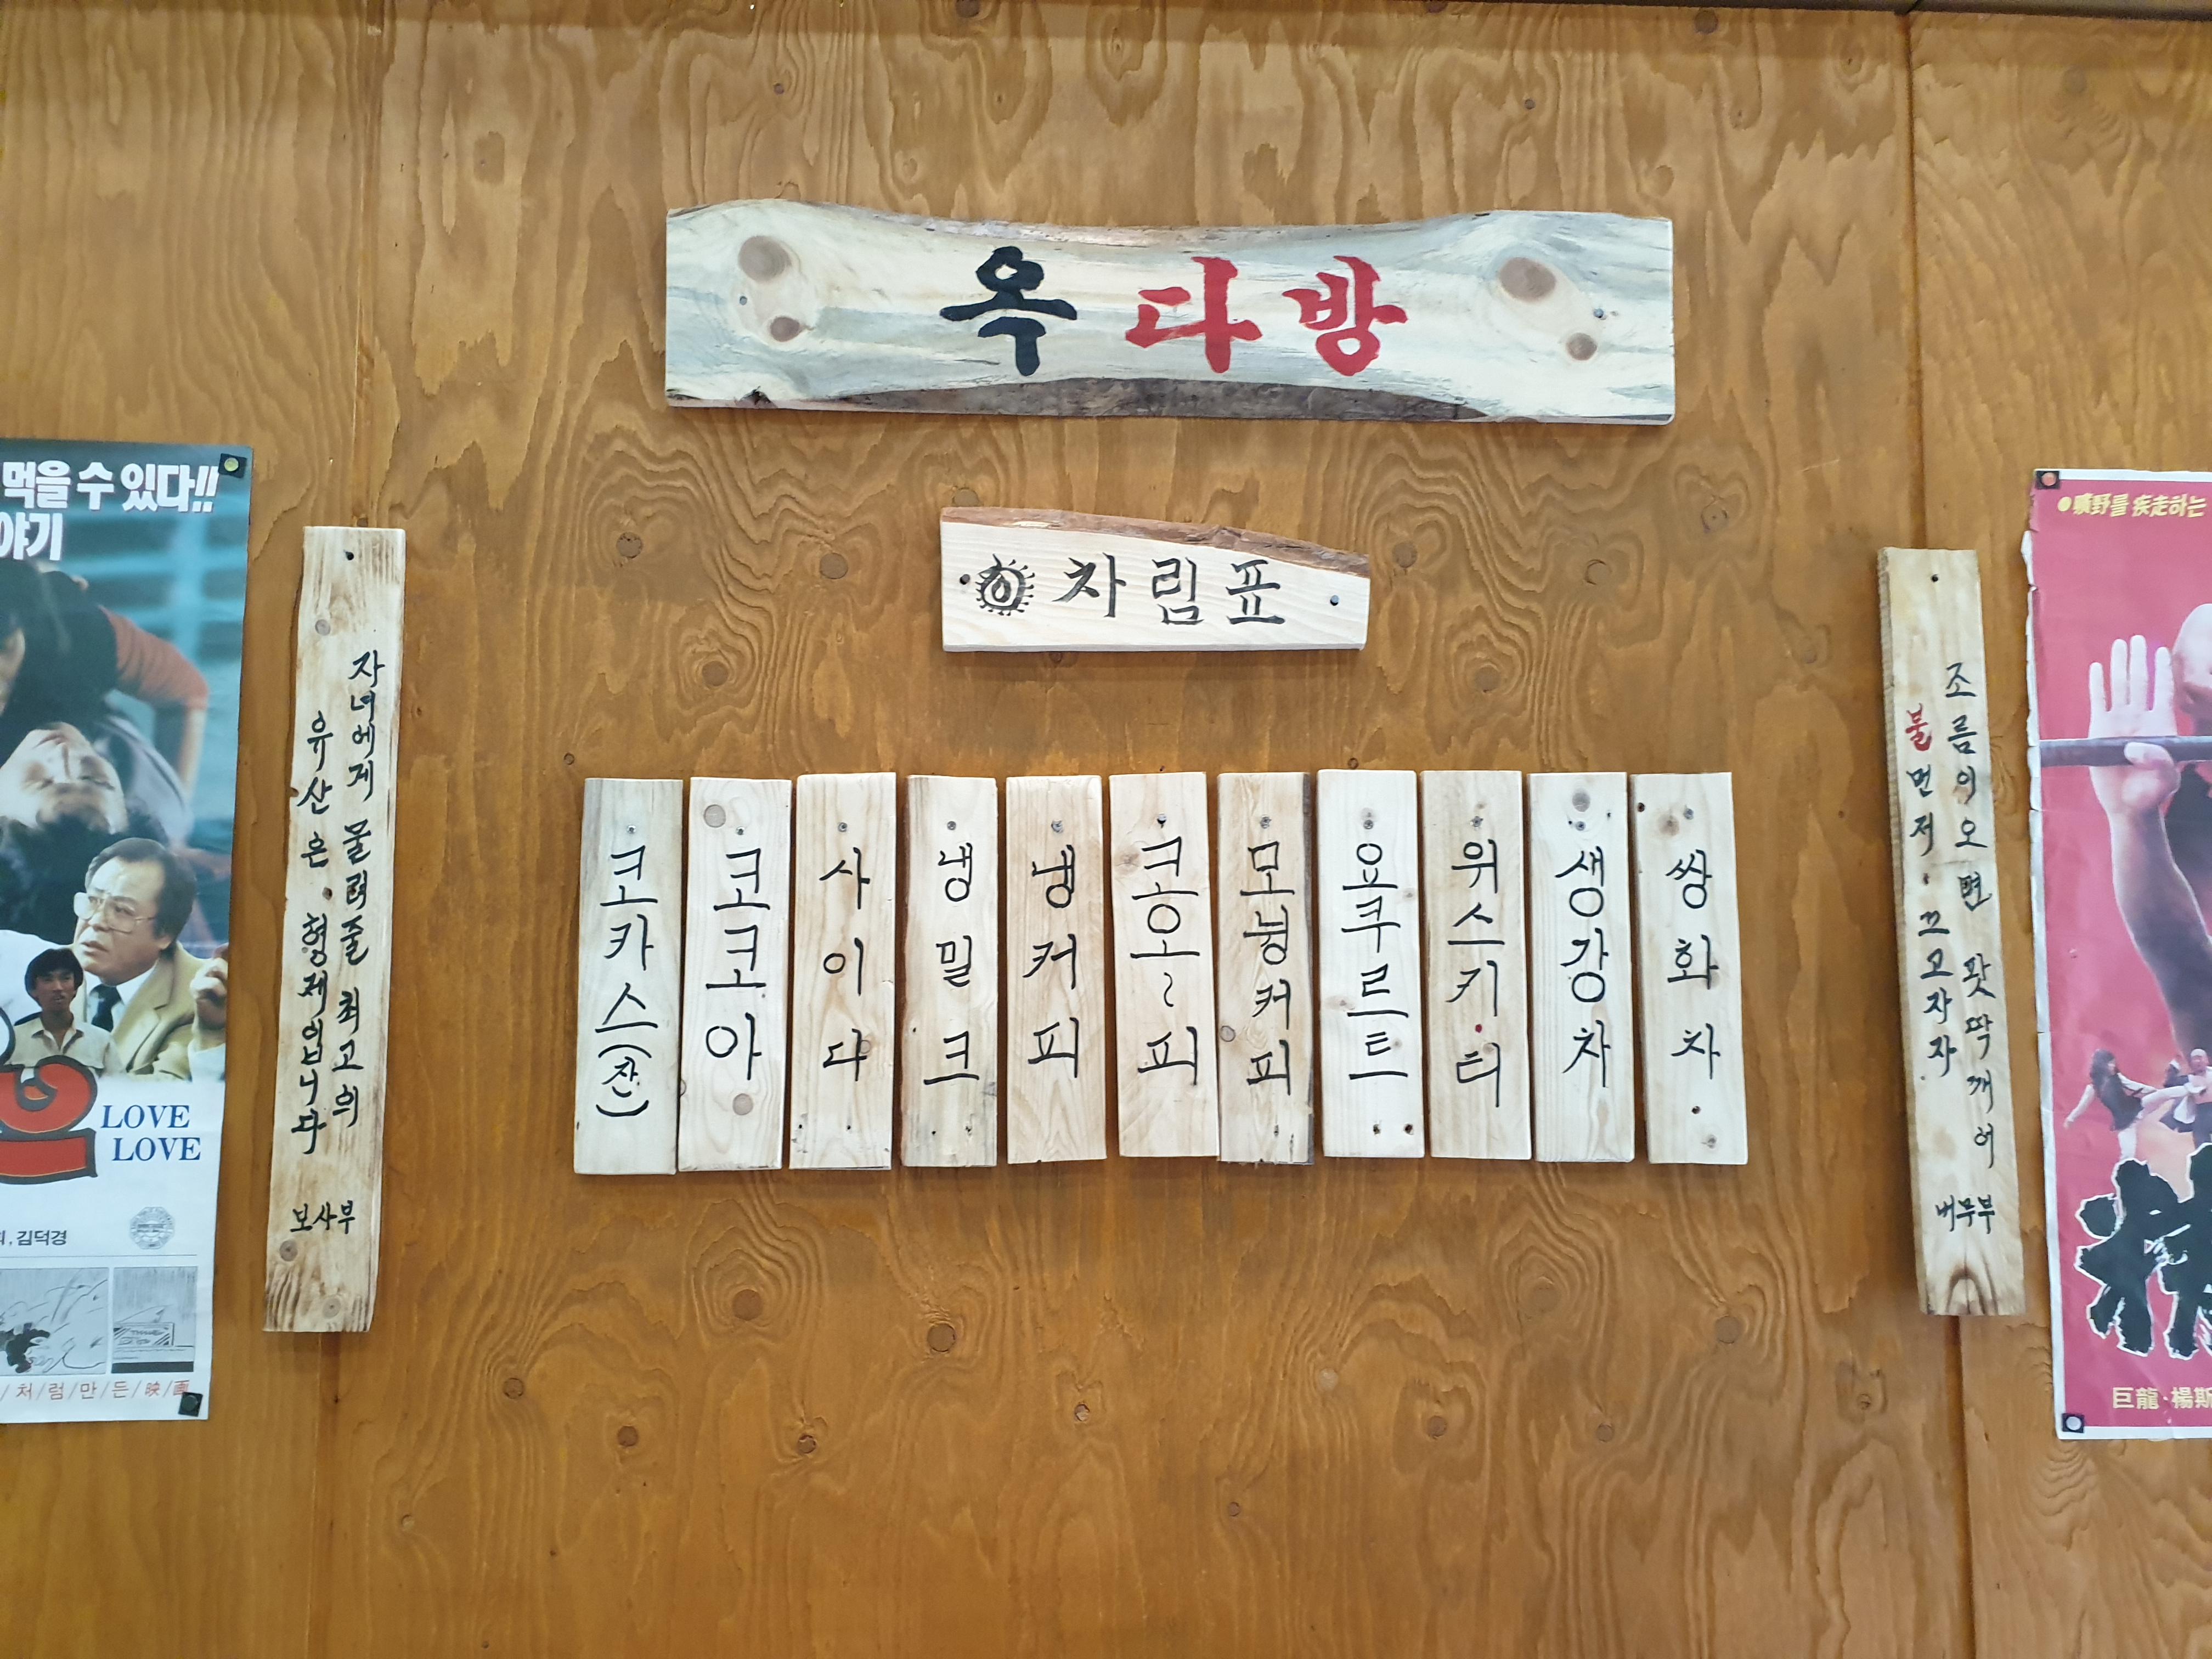 옥다방
차림표
코카스(잔)
코코아
사이다
냉밀크
냉커피
코오~피
모닝커피
요쿠르트
위스키·티
생강차
쌍화차
자녀에게 물려줄 최고의
유산은 형제입니다
보사부
조름이오면 팟딱깨어
불먼저 끄고자자
먹을 수 있다!!
야기
LOVE
LOVE
김덕경
/처/럼/만/든/映/画
●曠野를 疾走하는
巨龍·楊斯